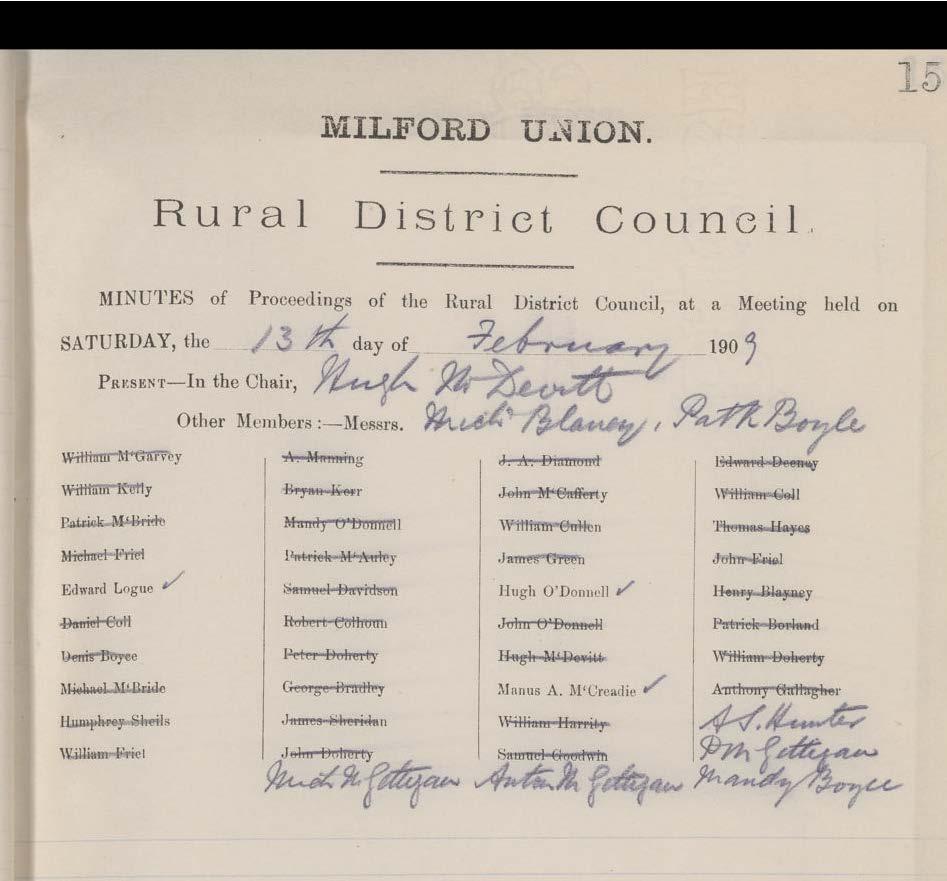 15
MILFORD UNION.
Rural District Council.
MINUTES of Proceedings of the Rural District Council, at a Meeting held on
SATURDAY, the 13th day of February 1909
PRESENT—In the Chair, Hugh McDevitt
Other Members :—Messrs. Michl Blaney, Patk Boyle
William M‘Garvey A. Manning J. A. Diamond Edward Deeney
William Kelly Bryan Kerr John M‘Cafferty William Coll
Patrick M‘Bride Mandy O’Donnell William Cullen Thomas Hayes
Michael Friel Patrick M‘Auley James Green John Friel
Edward Logue ✓ Samuel Davidson Hugh O’Donnell ✓ Henry Blayney
Daniel Coll Robert Colhoun John O’Donnell Patrick Borland
Denis Boyce Peter Doherty Hugh M‘Devitt William Doherty
Michael M‘Bride George Bradley Manus A. M‘Creadie ✓ Anthony Gallagher
Humphrey Sheils James Sheridan William Harrity A S. Hunter
William Friel John Doherty Samuel Goodwin D McGettigan
Mich McGettigan Anton McGettigan Mandy Boyce